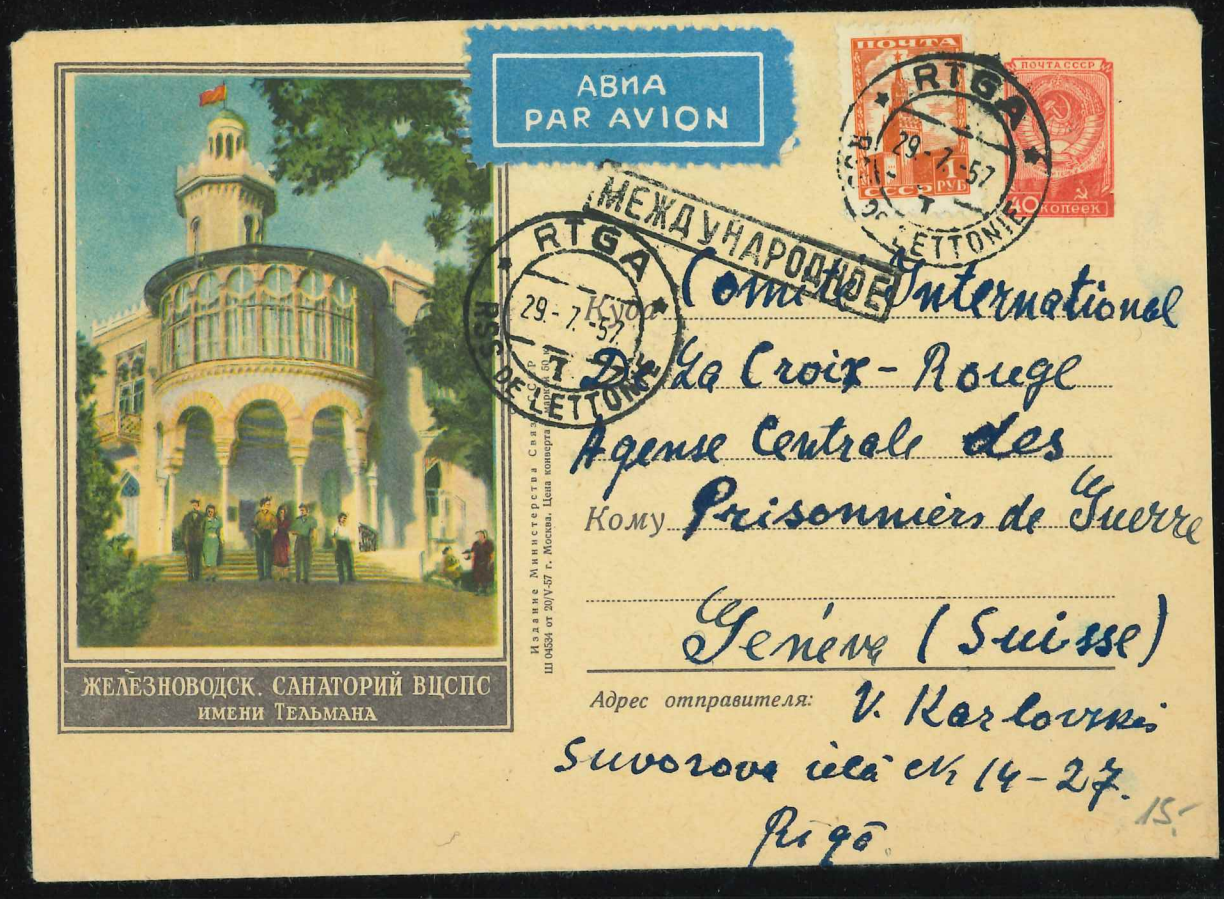 АВИА
PAR AVION
ПОЧТА
1
РУБ
СССР
ПОЧТА СССР
40 копеек
RTGA
29.-7.-57
T
RSS DE LETTONIE
МЕЖДУНАРОДНОЕ
RTGA
29.-7.-57
T
RSS DE LETTONIE
Куда Comité International
De La Croix-Rouge
Agense Centrale des
Кому Prisonniers de Guerre
Genéve (Suisse)
Адрес отправителя: V. Karlovskis
Suvorova ielā № 14-27.
Rīgā
15.-
Издание Министерства Связи
Ш 04534 от 20/V-57 г. Москва. Цена конверта
ЖЕЛЕЗНОВОДСК. САНАТОРИЙ ВЦСПС
ИМЕНИ ТЕЛЬМАНА